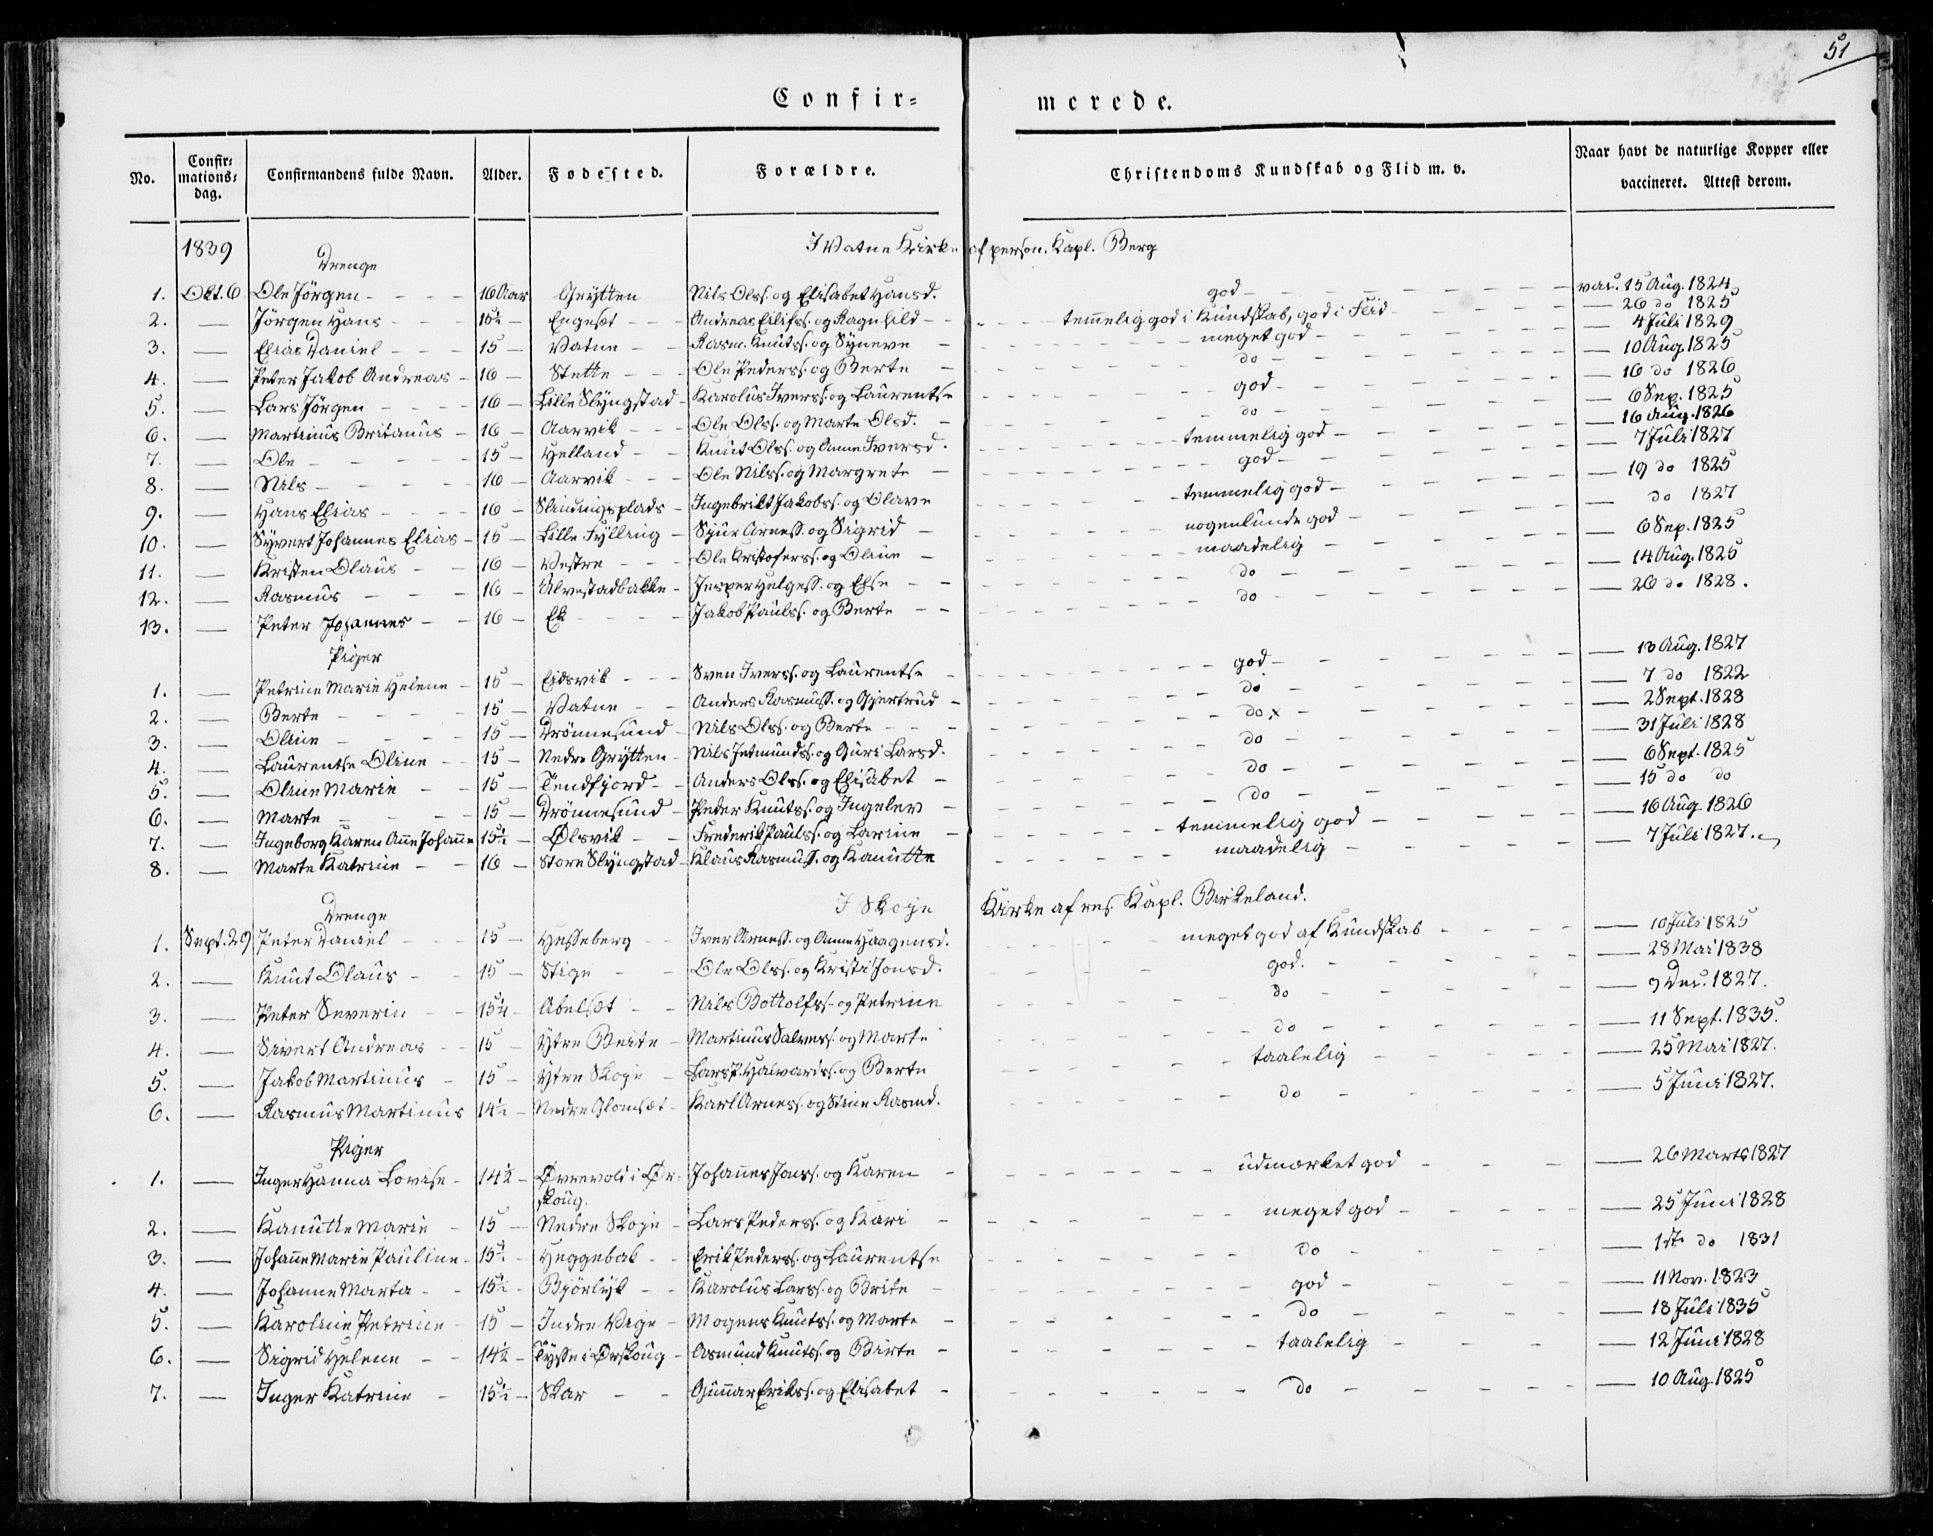 51
Confir= merede.
No. Confir= mations= dag. Confirmandens fulde Navn. Alder. Fødested. Forældre. Christendoms Kundskab og Flid m. v. Naar havt de naturlige Kopper eller vaccineret. Attest derom.
1839 I Vatne Kirke af person. Kapl. Berg
Drenge
1. Okt. 6 Ole Jörgen 16 Aar Grÿtten Nils Olss. og Elisabet Hansd. god vac. 15 Aug. 1824
2. — Jörgen Hans 15½ — Engeset Andreas Eilifss. og Ragnhild temmelig god i Kundskab, god i Flid — 26 do 1825
3. — Elias Daniel 15 — Vatne Rasm. Knutss. og Syneve meget god — 4 Juli 1829
4. — Peter Jakob Andreas 16 — Stette Ole Pederss. og Berte do — 10 Aug. 1825
5. — Lars Jörgen 16 — Lille Slyngstad Karolus Iverss. og Laurentse god — 16 do 1826
6. — Martinus Britanus 16 — Aarvik Ole Olss. og Marte Olsd. do — 6 Sep. 1825
7. — Ole 15 — Helland Knut Olss. og Anne Iversd. temmelig god — 16 Aug. 1826
8. — Nils 16 — Aarvik Ole Nilss. og Margrete god — 7 Juli 1827
9. — Hans Elias 16 — Slindingsplads Ingebrikt Jakobss. og Olave temmelig god — 19 do 1825
10. — Syvert Johannes Elias 15 — Lille Fylling Sjur Arness. og Sigrid nogenlunde god — do 1827
11. — Kristen Olaus 16 — Vestre Ole Kristoferss. og Oline maadelig — 6 Sep. 1825
12. — Rasmus 16 — Ulvestadbakke Jesper Helgess. og Else do — 14 Aug. 1825
13. — Peter Johannes 16 — Ek Jakob Paulss. og Berte do — 26 do 1828.
Piger
1. — Petrine Marie Helene 15 — Eidsvik Sven Iverss. og Laurentse god — 13 Aug. 1827
2. — Berte 15 — Vatne Anders Rasmuss. og Gjertrud do — 7 do 1822
3. — Oline 15 — Drönnesund Nils Olss. og Berte do x — 2 Sept. 1828
4. — Laurentse Oline 15 — Nedre Grytten Nils Jetmundss. og Guri Larsd. do — 31 Juli 1828
5. — Oline Marie 15 — Tendfjord Anders Olss. og Elisabet do — 6 Sept. 1825
6. — Marte 15 — Drönnesund Peder Knutss. og Ingelev do — 15 do do
7. — Ingeborg Karen Anne Johanne 15½ — Ølsvik Frederik Paulss. og Larine temmelig god — 16 Aug. 1826
8. — Marte Katrine 16 — Store Slyngstad Klaus Rasmuss. og Kanutte maadelig — 7 Juli 1827.
I Skoje Kirke af res. Kapl. Birkeland.
Drenge
1. Sept. 29 Peter Daniel 15 — Hesseberg Iver Arness. og Anne Haagensd. meget god af Kundskab — 10 Juli 1825
2. — Knut Olaus 15 — Stige Ole Olss. og Kristi Jonsd. god. — 28 Mai 1838
3. — Peter Severin 15¼ — Abelset Nils Bottolfs. og Petrine do — 9 Dec. 1827.
4. — Sivert Andreas 15 — Ytre Beite Martinus Salvess. og Marte do — 11 Sept. 1835.
5. — Jakob Martinus 15 — Ytre Skoje Lars P. Halvardss. og Berte taalelig — 25 Mai 1827.
6. — Rasmus Martinus 14½ — Nedre Glomset Karl Arness. og Stine Rasmd. do — 5 Juni 1827.
Piger
1. — Inger Hanna Lovise 14½ — Øvrevold i Ør= skoug. Johannes Jonss. og Karen udmærket god — 26 Marts 1827
2. — Kanutte Marie 15 — Nedre Skoje Lars Pederss. og Kari meget god — 25 Juni 1828
3. — Johanne Marie Pauline 15½ — Heggebak Erik Pederss. og Laurentse do — 1ste do 1831
4. — Johanne Marta 15½ — Bjørlÿk Karolus Larss. og Brite god — 11 Nov. 1823
5. — Karoline Petrine 15 — Indre Vige Mogens Knutss. og Marte do — 18 Juli 1835
6. — Sigrid Helene 14½ — Tysse i Ørskoug Asmund Knutss. og Birte taalelig — 12 Juni 1828
7. — Inger Katrine 15½ — Skar Gunnar Erikss. og Elisabet do — 10 Aug. 1825